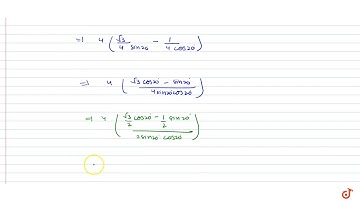 ⇒ 4 ( √3 / 4 sin20 − 1 / 4 cos20 )
⇒ 4 ( √3 cos20° − sin20° / 4 sin20 cos20 )
⇒ 4 ( √3/2 cos20° − 1/2 sin20° / 2 sin20° cos20° )